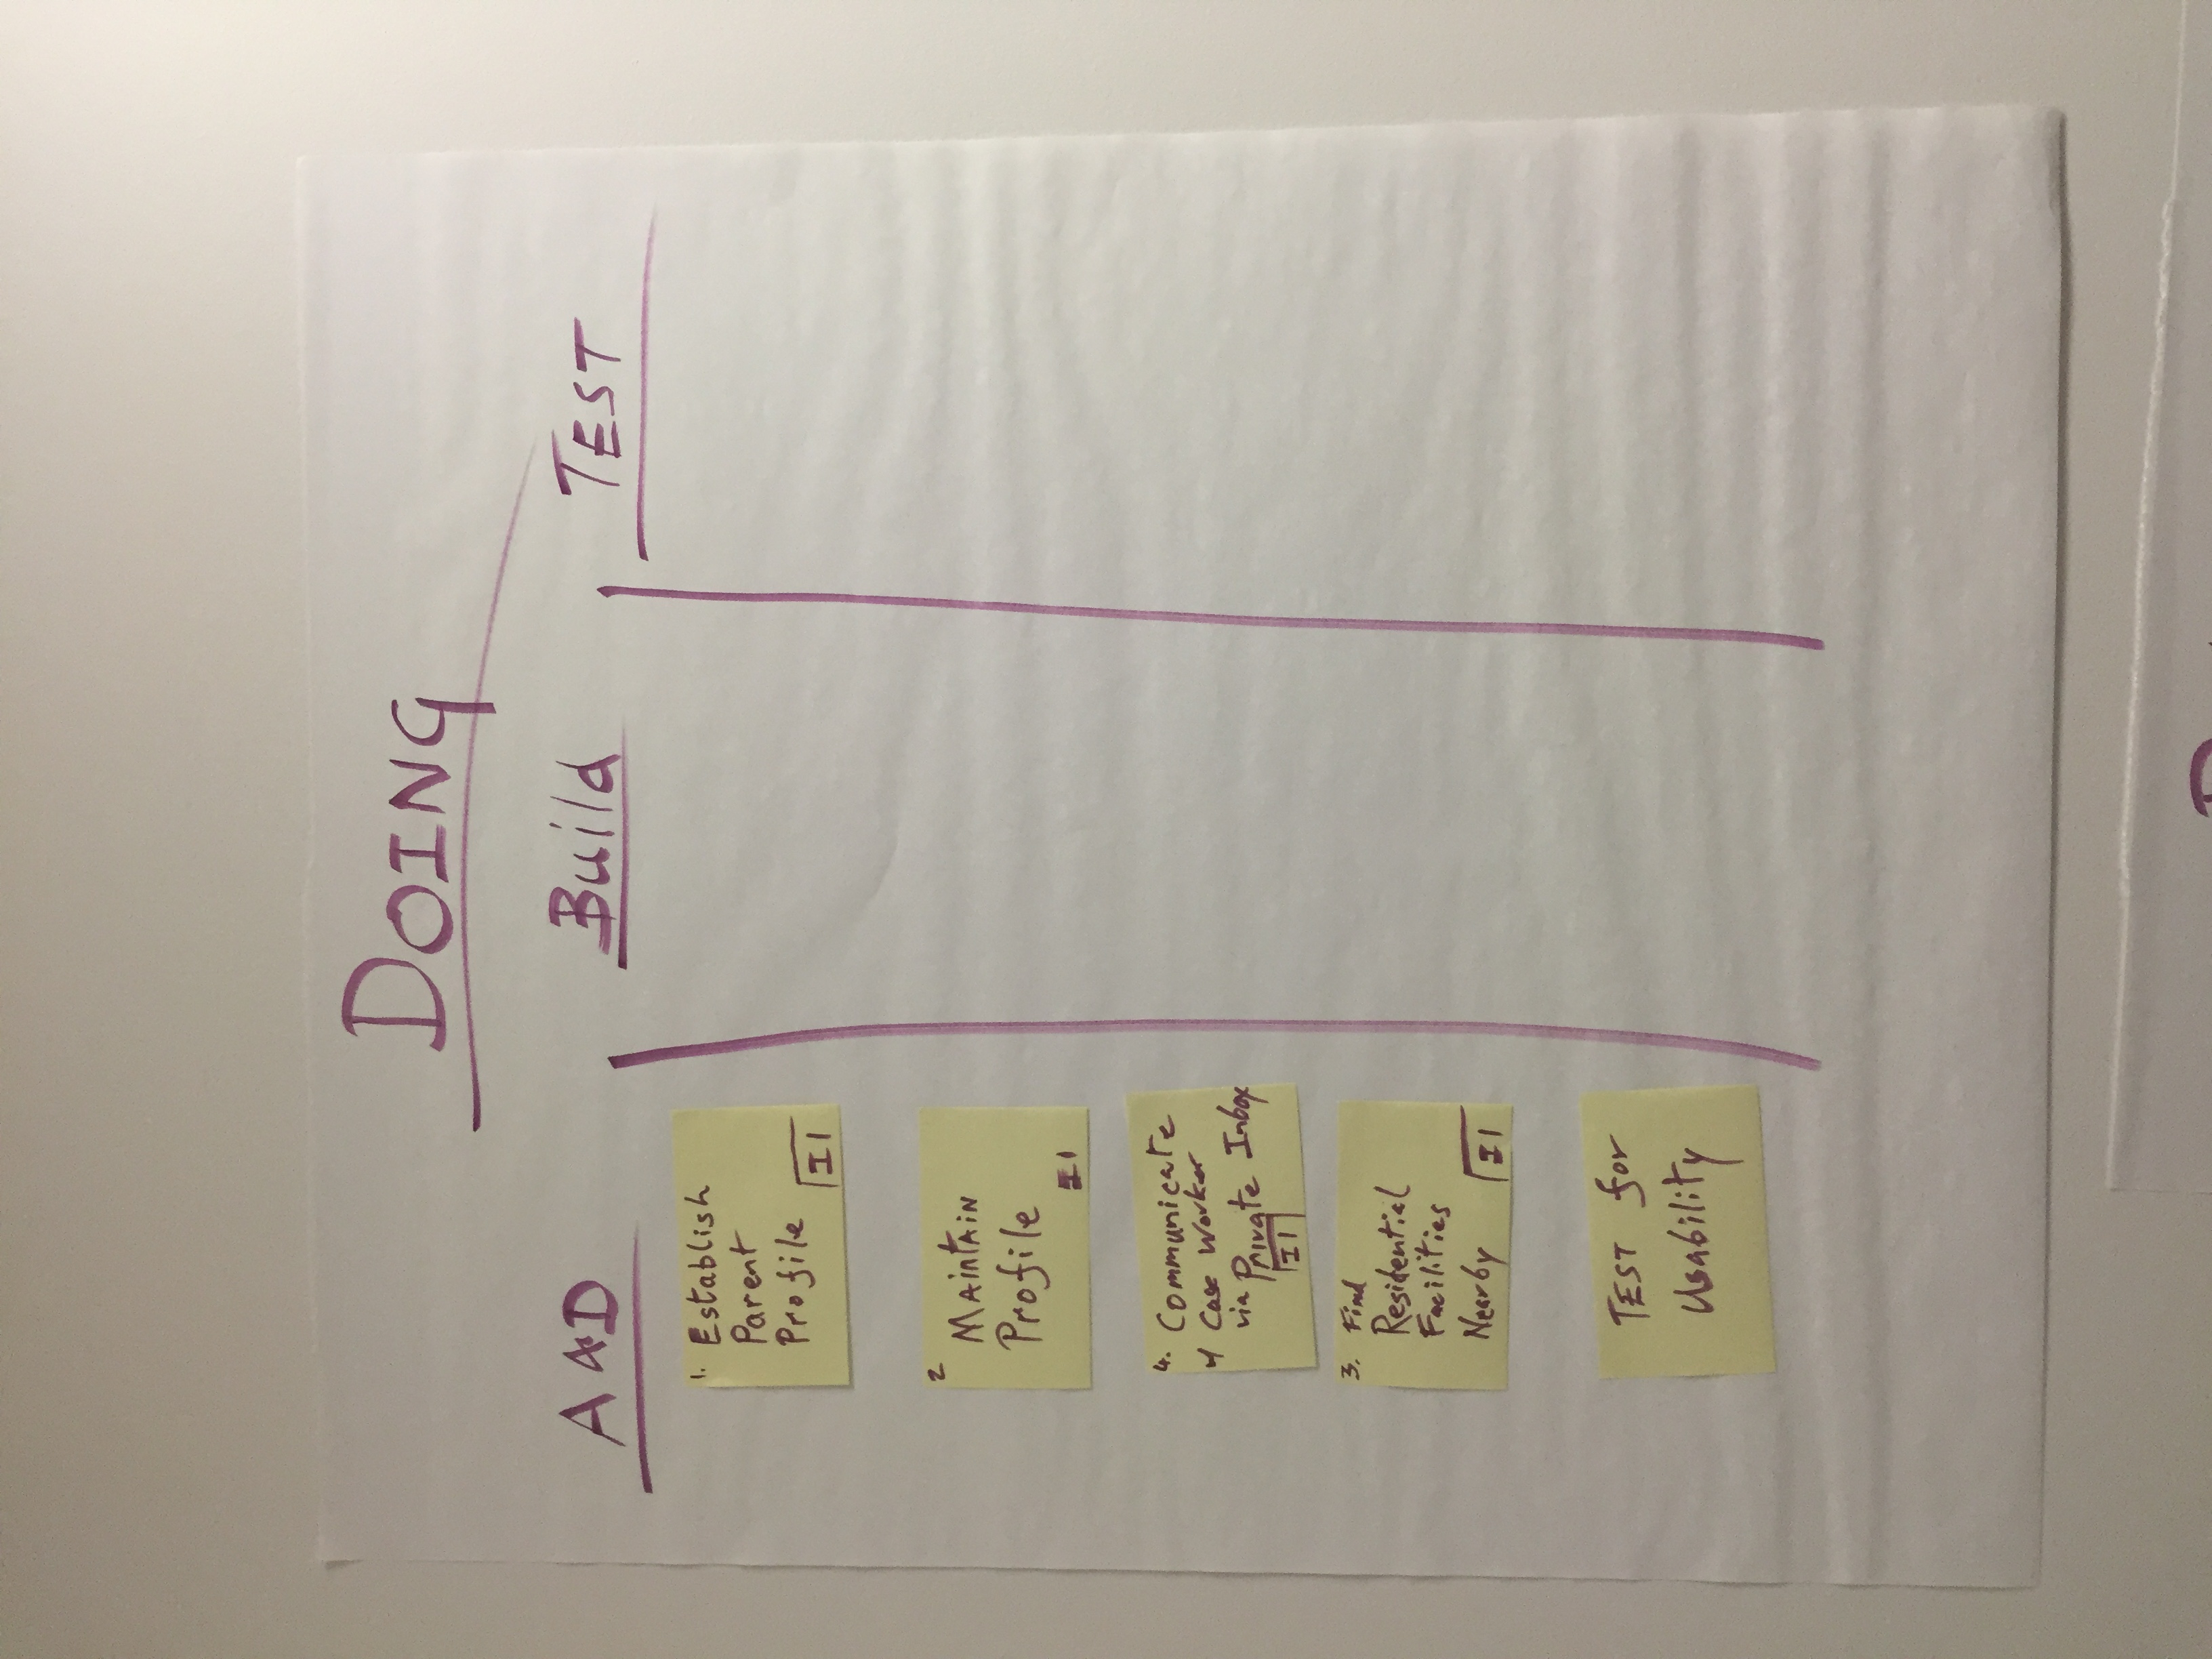 DOING
A&D
Build
TEST
1. Establish
Parent
Profile
I1
2
MAintAiN
Profile
I1
4. Communicate
w/ Case Worker
via Private Inbox
I1
3. Find
Residential
Facilities
Nearby
I1
TEST for
Usability